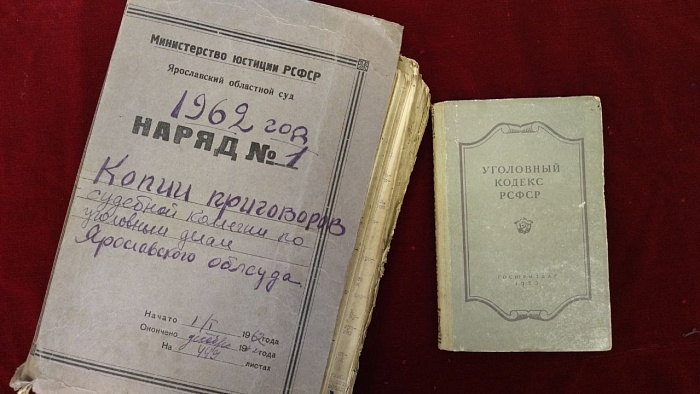 Министерство юстиции РСФСР
Ярославский областной суд
1962 год
НАРЯД № 1
Копии приговоров
судебной коллегии по
уголовным делам
Ярославского облсуда
Начато 1/I 1962 года
Окончено декабрь 1962 года
На листах
УГОЛОВНЫЙ
КОДЕКС
РСФСР
ГОСЮРИЗДАТ